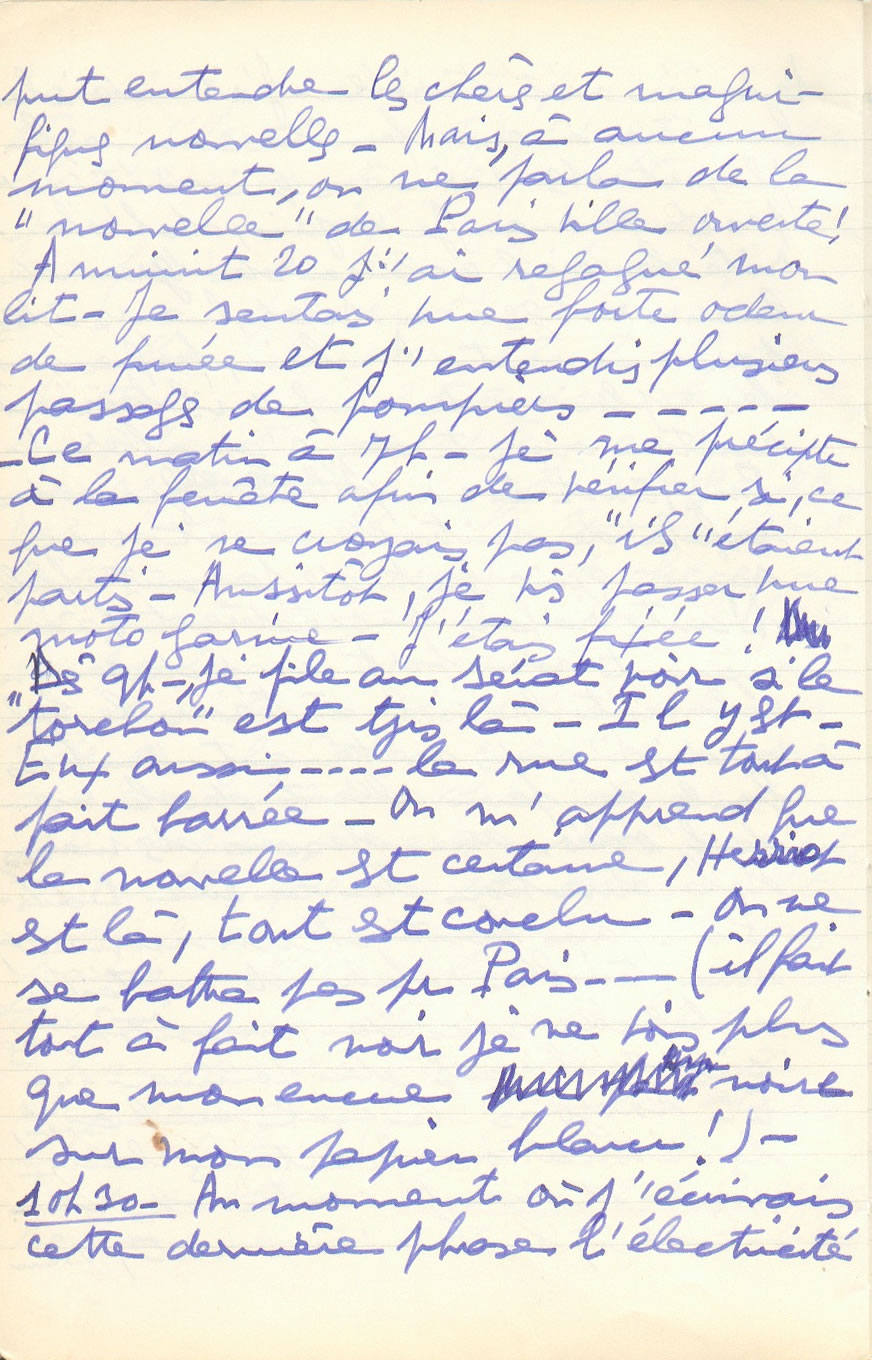 put entendre les chères et magni-
fiques nouvelles - Mais, à aucun
moment, on ne parla de la
"nouvelle" de Paris ville ouverte!
A minuit 20 j'ai regagné mon
lit - Je sentais une forte odeur
de fumée et j'entendis plusieurs
passages de pompiers - - - - -
- Ce matin à 7h - je me précipite
à la fenête afin de vérifier si, ce
que je ne croyais pas, "ils" étaient
partis - Aussitôt, je vis passer une
moto garnie - J'étais fixée !
Dès 9h -, je file au Sénat voir si le
"torchon" est tjrs là - Il y est -
Eux aussi - - - - la rue est tout à
fait barrée - On m'apprend que
la nouvelle est certaine, Herriot
est là, tout est conclu - On ne
se battra pas pr Paris - - - (il fait
tout à fait noir je ne vois plus
que mon encre noire
sur mon papier blanc !) -
10h30 - Au moment où j'écrivais
cette dernière phrase l'électricité